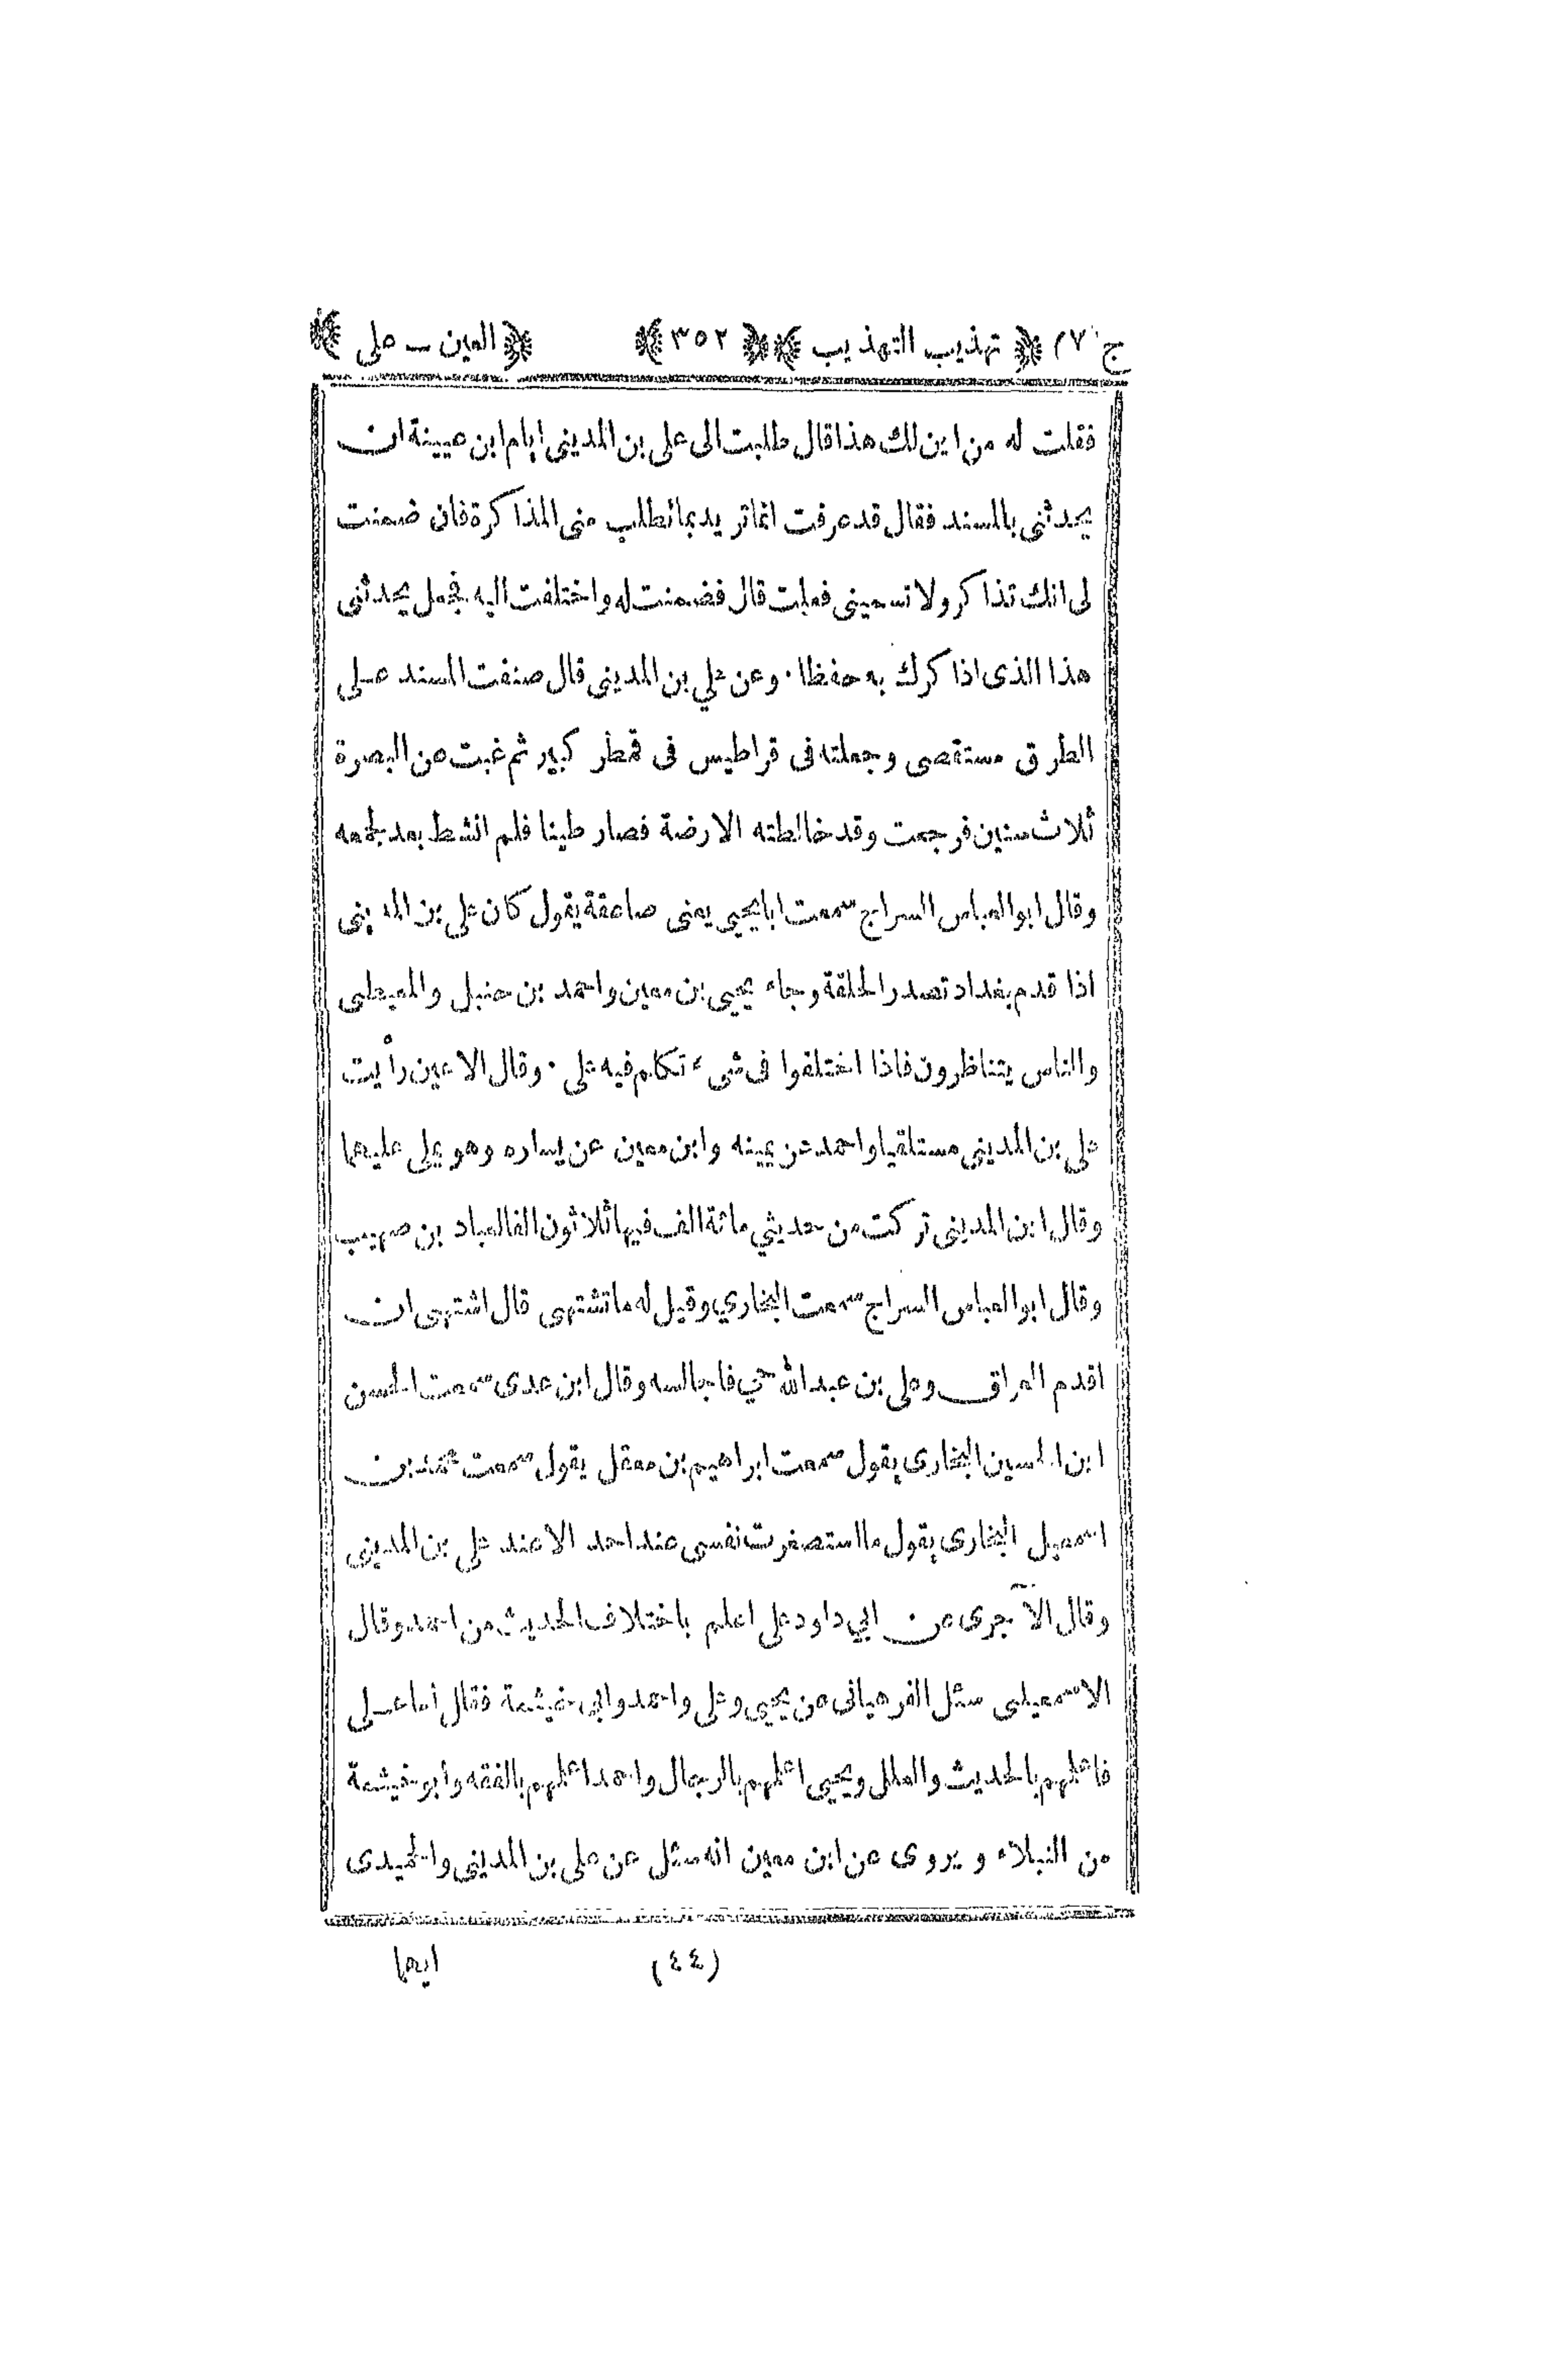 ج (٧) ﴿ تهذيب التهذيب ﴾﴿ ٣٥٢ ﴾ ﴿ العين ــ على ﴾
فقلت له من اين لك هذا قال طلبت الى على بن المدينى ايام ابن عيينة ان
يحدثنى بالمسند فقال قد عرفت انما تريد بما تطلب منى المذا كرة فان ضمنت
لى انك تذا كر ولا تسمينى فعلت قال فضمنت له واختلفت اليه فجعل يحدثنى
هذا الذى اذا كرك به حفظا . وعن علي بن المدينى قال صنفت المسند عـلى
الطرق مستقصى وجعلته فى قراطيس فى قمطر كبير ثم غبت عن البصرة
ثلاث سنين فرجعت وقد خالطته الارضة فصار طينا فلم انشط بعد لجمعه
وقال ابو العباس السراج سمعت ابا يحيى يعنى صاعقة يقول كان على بن المدينى
اذا قدم بغداد تصدر الحلقة وجاء يحيى بن معين واحمد بن حنبل والمعيطى
والناس يتناظرون فاذا اختلفوا فى شىء تكلم فيه على . وقال الاعين رأيت
على بن المدينى مستلقيا واحمد عن يمينه وابن معين عن يساره وهو يملى عليهما
وقال ابن المدينى تر كت من حديثي مائة الف فيها ثلاثون الفا لعباد بن صهيب
وقال ابو العباس السراج سمعت البخاري وقيل له ما تشتهى قال اشتهى ان
اقدم العراق وعلى بن عبد الله حي فاجالسه وقال ابن عدى سمعت الحسن
ابن الحسين البخارى يقول سمعت ابراهيم بن معقل يقول سمعت محمد بن
اسمعيل البخارى يقول ما استصغرت نفسى عند احد الا عند على بن المدينى
وقال الآجرى عن ابي داود على اعلم باختلاف الحديث من احمد وقال
الاسمعيلى سئل الفرهيانى عن يحيى وعلى واحمد وابى خيثمة فقال أما عـلى
فاعلمهم بالحديث والعلل ويحيى اعلمهم بالرجال واحمد اعلمهم بالفقه وابو خيثمة
من النبلاء و يروى عن ابن معين انه سئل عن على بن المدينى والحميدى
(٤٤) ايهما